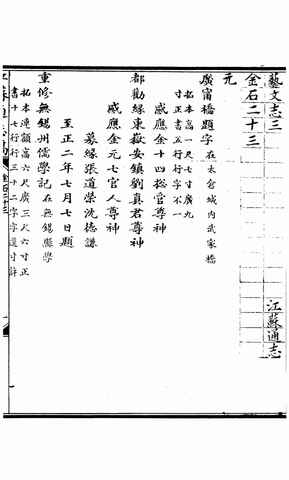 藝文志三
江蘇通志
金石二十三
元
廣甯橋題字在太倉城內武家橋
拓本高一尺七寸廣九
寸正書五行行字不一
感應金十四捴管尊神
都勸緣東嶽安鎮劉真君尊神
感應金元七官人尊神
募緣張道榮沈德謙
至正二年七月七日題
重修無錫州儒學記在無錫縣學
拓本連額高六尺廣三尺六寸正
書十七行行三十二字字徑寸許